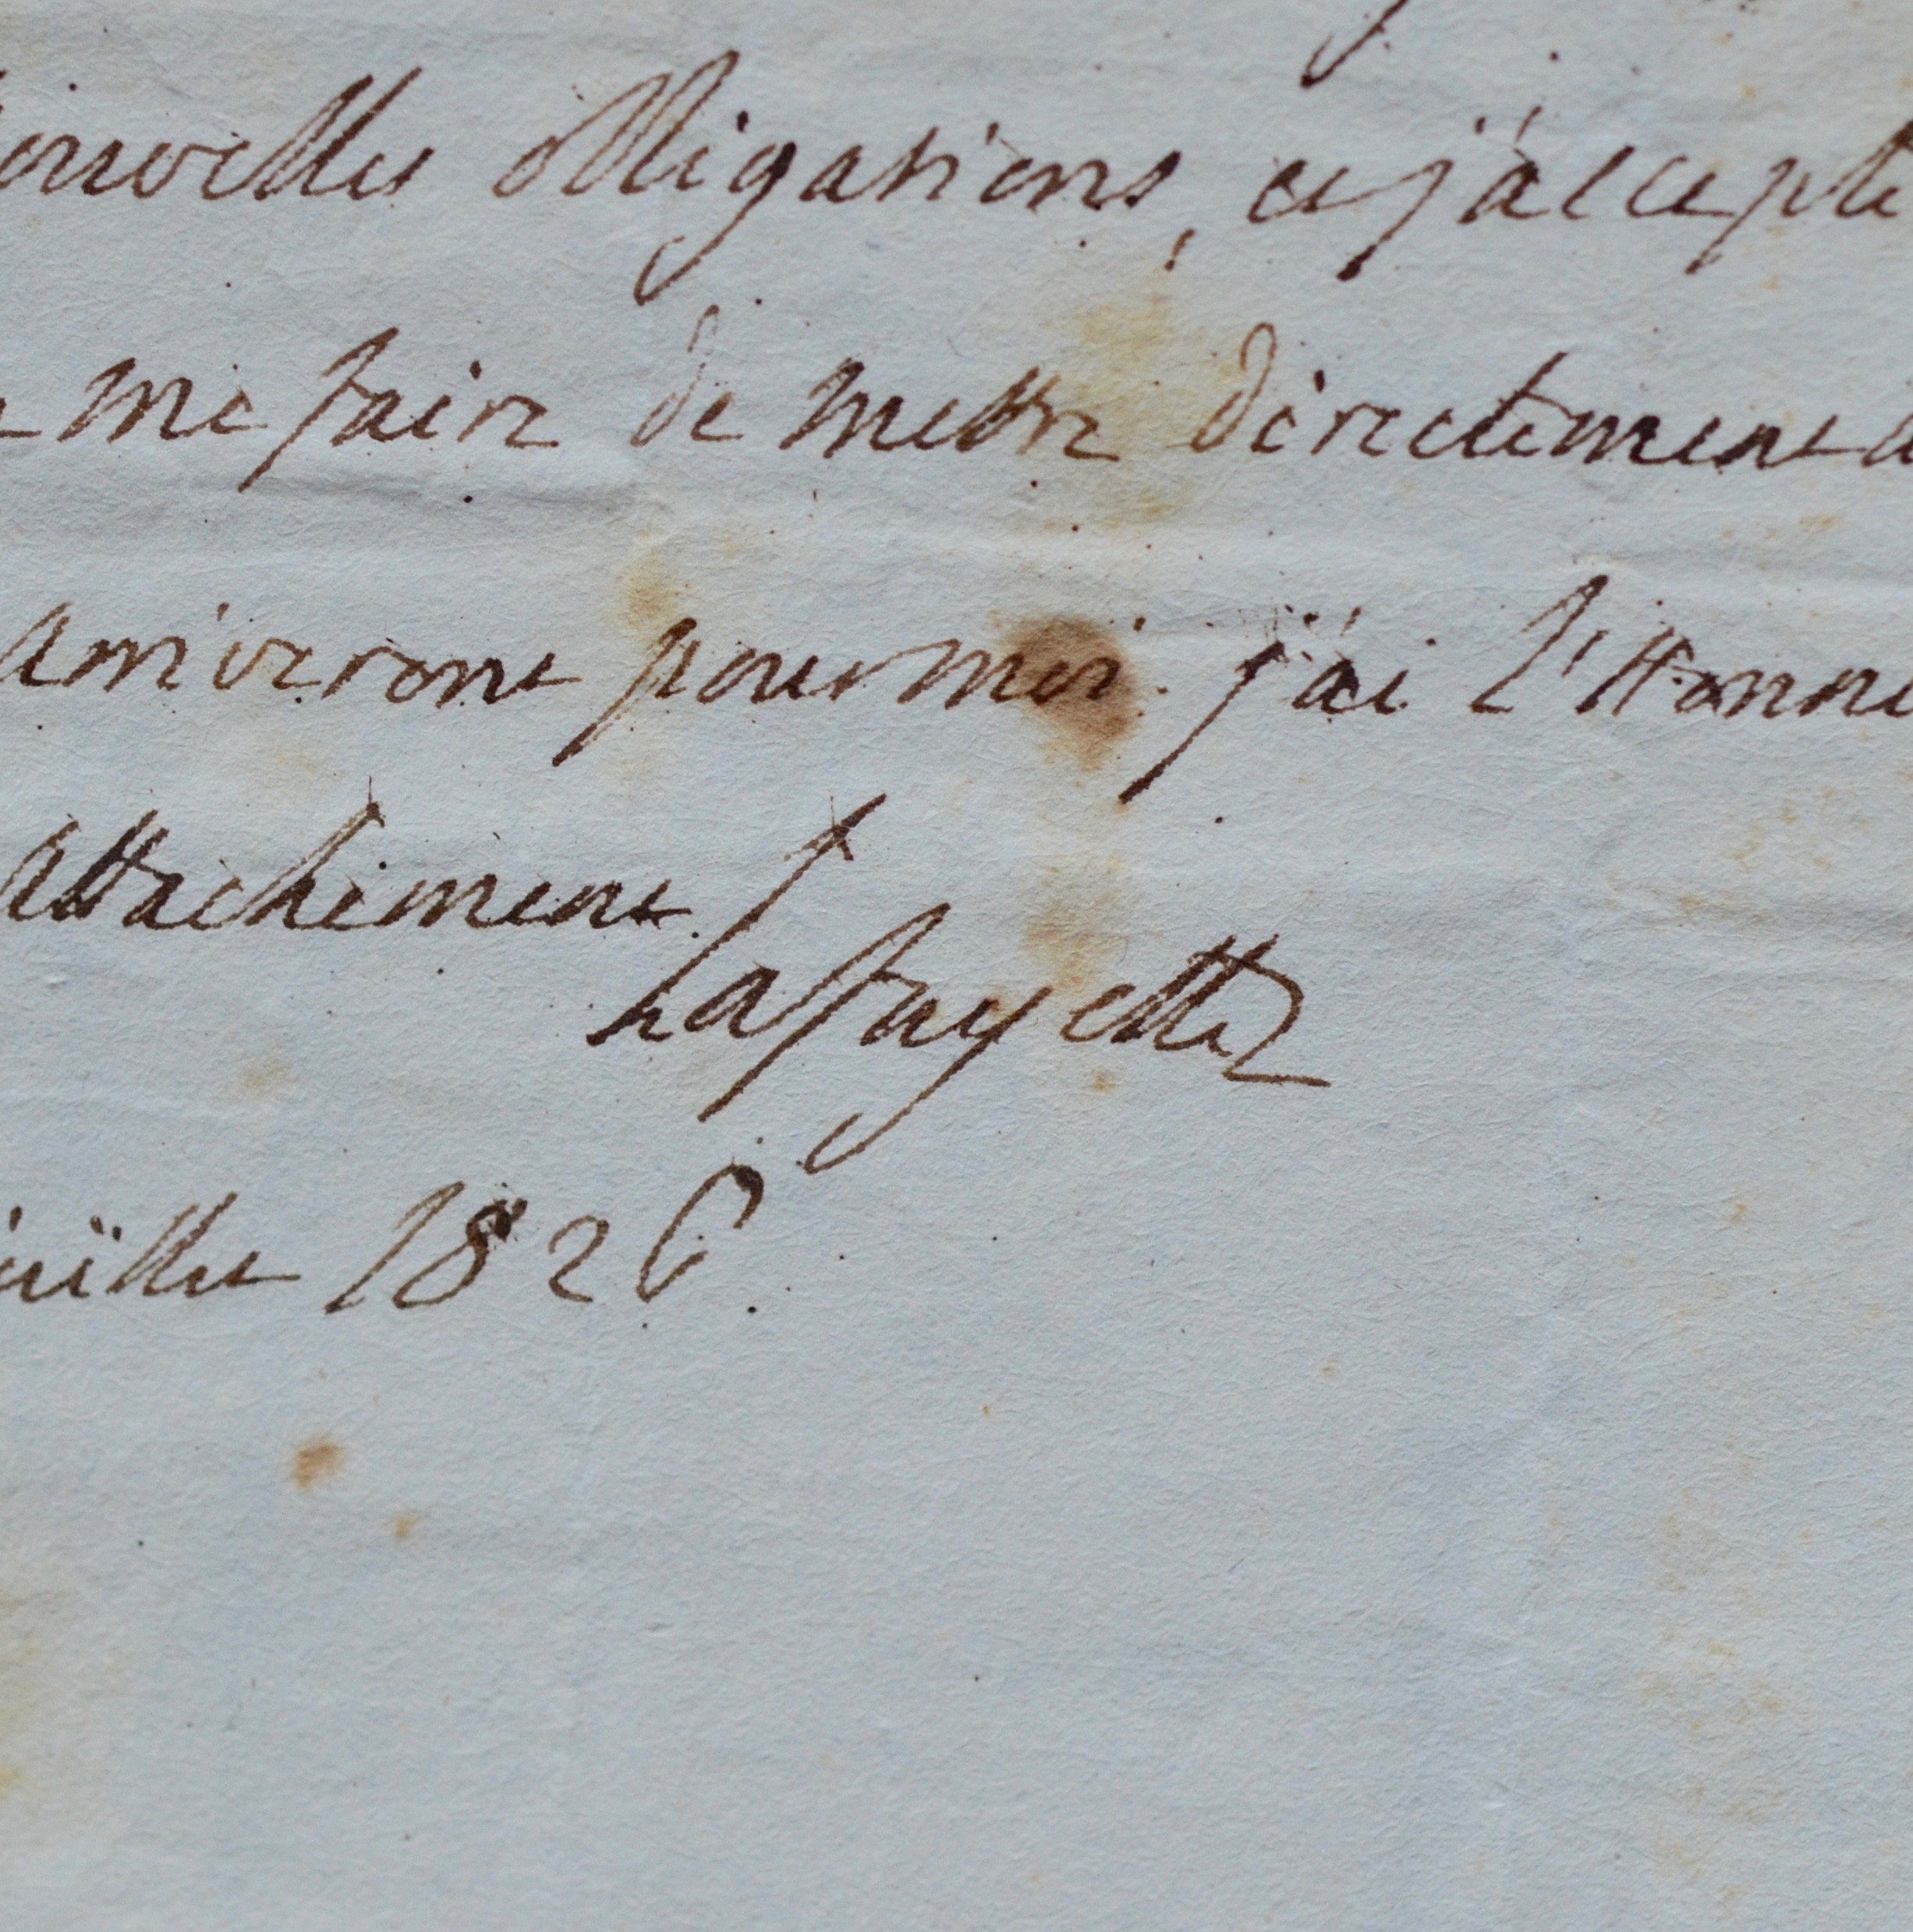 nouvelles obligations, et j'accepte
me faire de mettre directement
arriveront pour moi. j'ai l'Honne
attachement
Lafayette
juillet 1826